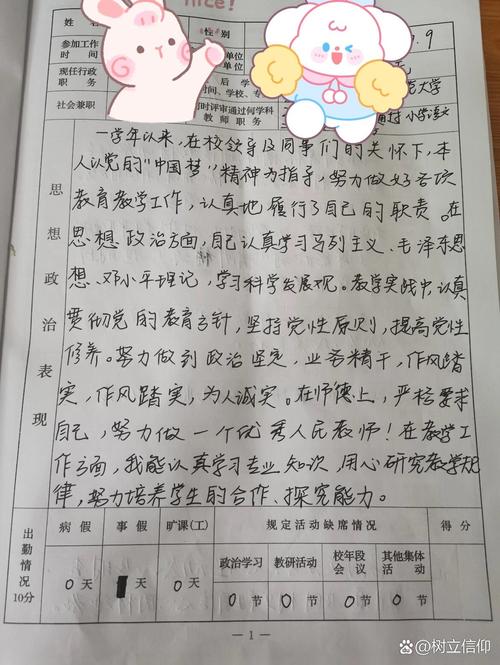 nice!
姓
性 别
9
参加工作
时 间
单位
单位
现任行政
职 务
后 学
时间、学校、专
范大学
社会兼职
时评审通过何学科
教师职务
小学语文
思想政治表现
一学年以来，在校领导及同事们的关怀下，本
人认党的"中国梦"精神为指导，努力做好各项
教育教学工作，认真地履行了自己的职责。在
思想政治方面，自己认真学习马列主义、毛泽东思
想、邓小平理记，学习科学发展观。教学实践中，认真
贯彻党的教育方针，坚持党性原则，提高党性
修养。努力做到政治坚定，业务精干，作风踏
实，作风踏实，为人诚实。在师德上，严格要求
自己，努力做一个优秀人民教师！在教学工
作方面，我能认真学习专业知识，用心研究教学规
律，努力培养学生的合作、探究能力。
出勤情况
10分
病 假
事 假
旷课(工)
规 定 活 动 缺 席 情 况
得 分
政治学习
教研活动
校年段
会 议
其他集体
活 动
0天
1天
0天
0节
0节
0节
0节
— 1 —
@树立信仰